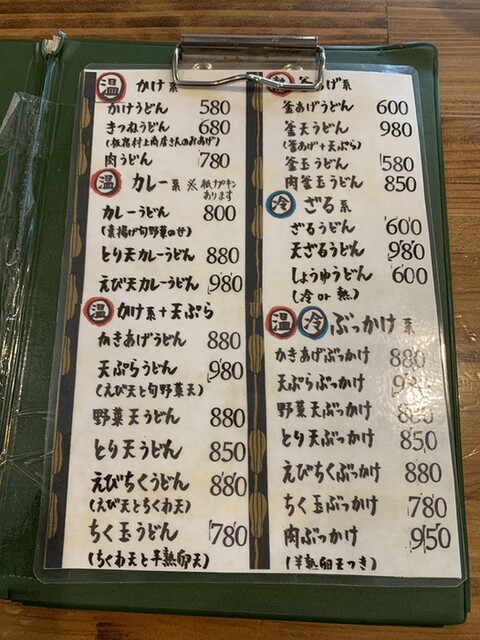 温 かけ系
かけうどん 580
きつねうどん 680
(板宿村上商店さんのおあげ)
肉うどん 780
温 カレー系 ※紙ナプキン
あります
カレーうどん 800
(素揚げ旬野菜のせ)
とり天カレーうどん 880
えび天カレーうどん 980
温 かけ系+天ぷら
かきあげうどん 880
天ぷらうどん 980
(えび天と旬野菜天)
野菜天うどん 880
とり天うどん 850
えびちくうどん 880
(えび天とちくわ天)
ちく玉うどん 780
(ちくわ天と半熟卵天)
釜あげ系
釜あげうどん 600
釜天うどん 980
(釜あげ+天ぷら)
釜玉うどん 580
肉釜玉うどん 850
冷 ざる系
ざるうどん 600
天ざるうどん 980
しょうゆうどん 600
(冷or熱)
温 冷 ぶっかけ系
かきあげぶっかけ 880
天ぷらぶっかけ
野菜天ぶっかけ
とり天ぶっかけ 850
えびちくぶっかけ 880
ちく玉ぶっかけ 780
肉ぶっかけ 950
(半熟卵天つき)